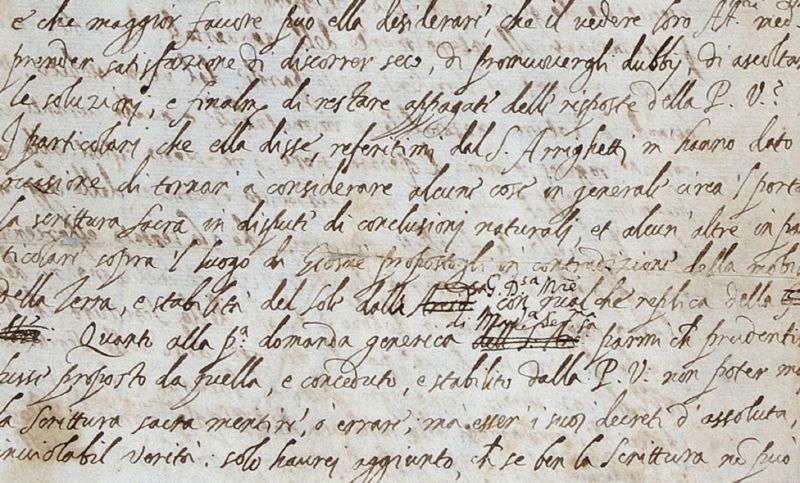 e che maggior favore può ella desiderare, che il vedere loro Alt.
prender satisfazione di discorrer seco, di promuovergli dubbij, di ascoltar
le soluzioni, e finalm. di restare appagate delle risposte della P. V.?
I particolari che ella disse, referitimi dal S. Arrighetti, m hanno dato
occasione di tornar' à considerare alcune cose in generale circa 'l portar
la scrittura sacra in dispute di conclusioni naturali, et alcun' altre in par
ticolare sopra 'l luogo di Giosuè propostogli in contradizione della mobil
della Terra, e stabilità del sole dalla con qualche replica della
di Mad.
Quanto alla pa. domanda generica parmi ch prudentis
fusse proposto da quella, e conceduto, e stabilito dalla P. V. non poter mai
la scrittura sacra mentire, ò errare; ma esser' i suoi decreti d' assoluta,
inviolabil verità: solo haurei aggiunto, ch se ben la Scrittura nō può